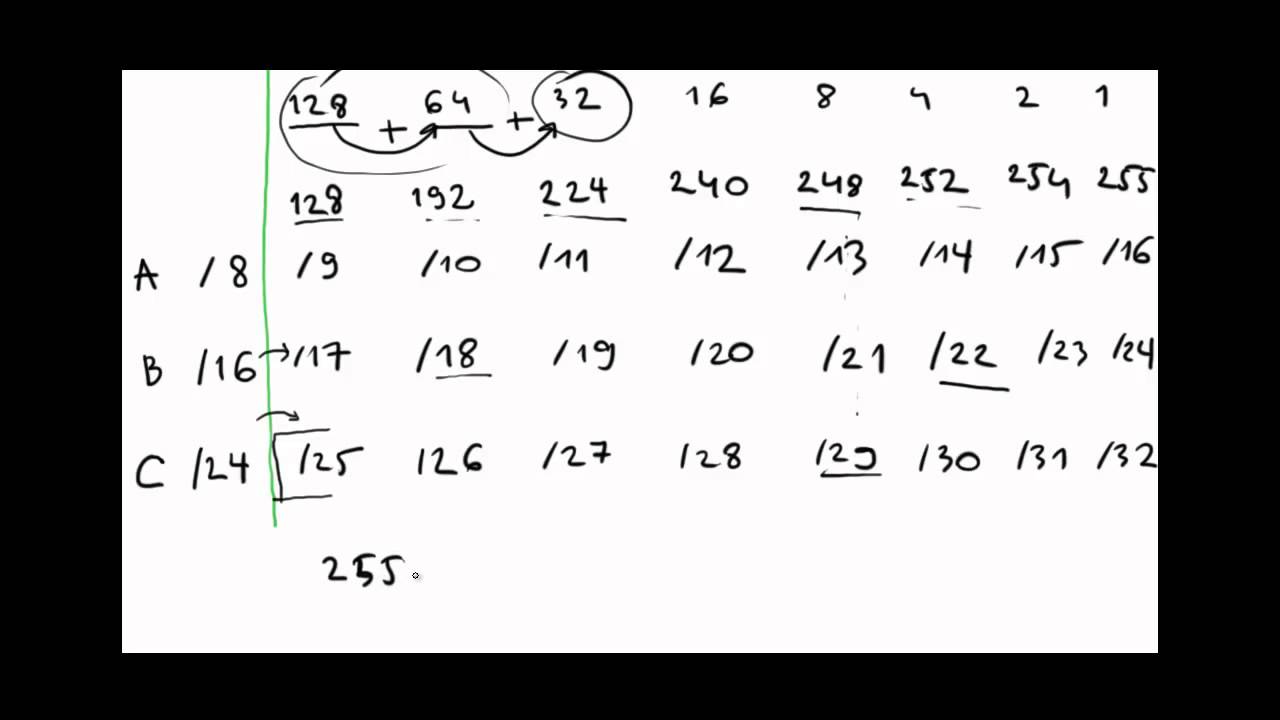 128 + 64 + 32 16 8 4 2 1
128 192 224 240 248 252 254 255
A /8 /9 /10 /11 /12 /13 /14 /15 /16
B /16 /17 /18 /19 /20 /21 /22 /23 /24
C /24 /25 /26 /27 /28 /29 /30 /31 /32
255